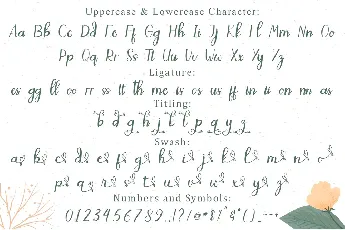 Uppercase & Lowercase Character:
Aa Bb Cc Dd Ee Ff Gg Hh Ii Jj Kk Ll Mm Nn Oo
Pp Qq Rr Ss Tt Uu Vv Ww Xx Yy Zz
Ligature:
es gg ll oo rr ss tt th me is os us ff in ii on nn as
Titling:
b d g h j l l p q y z
Swash:
a b c d e f g h i j k l m n o
p q r s t u v w x y z
Numbers and Symbols:
0123456789